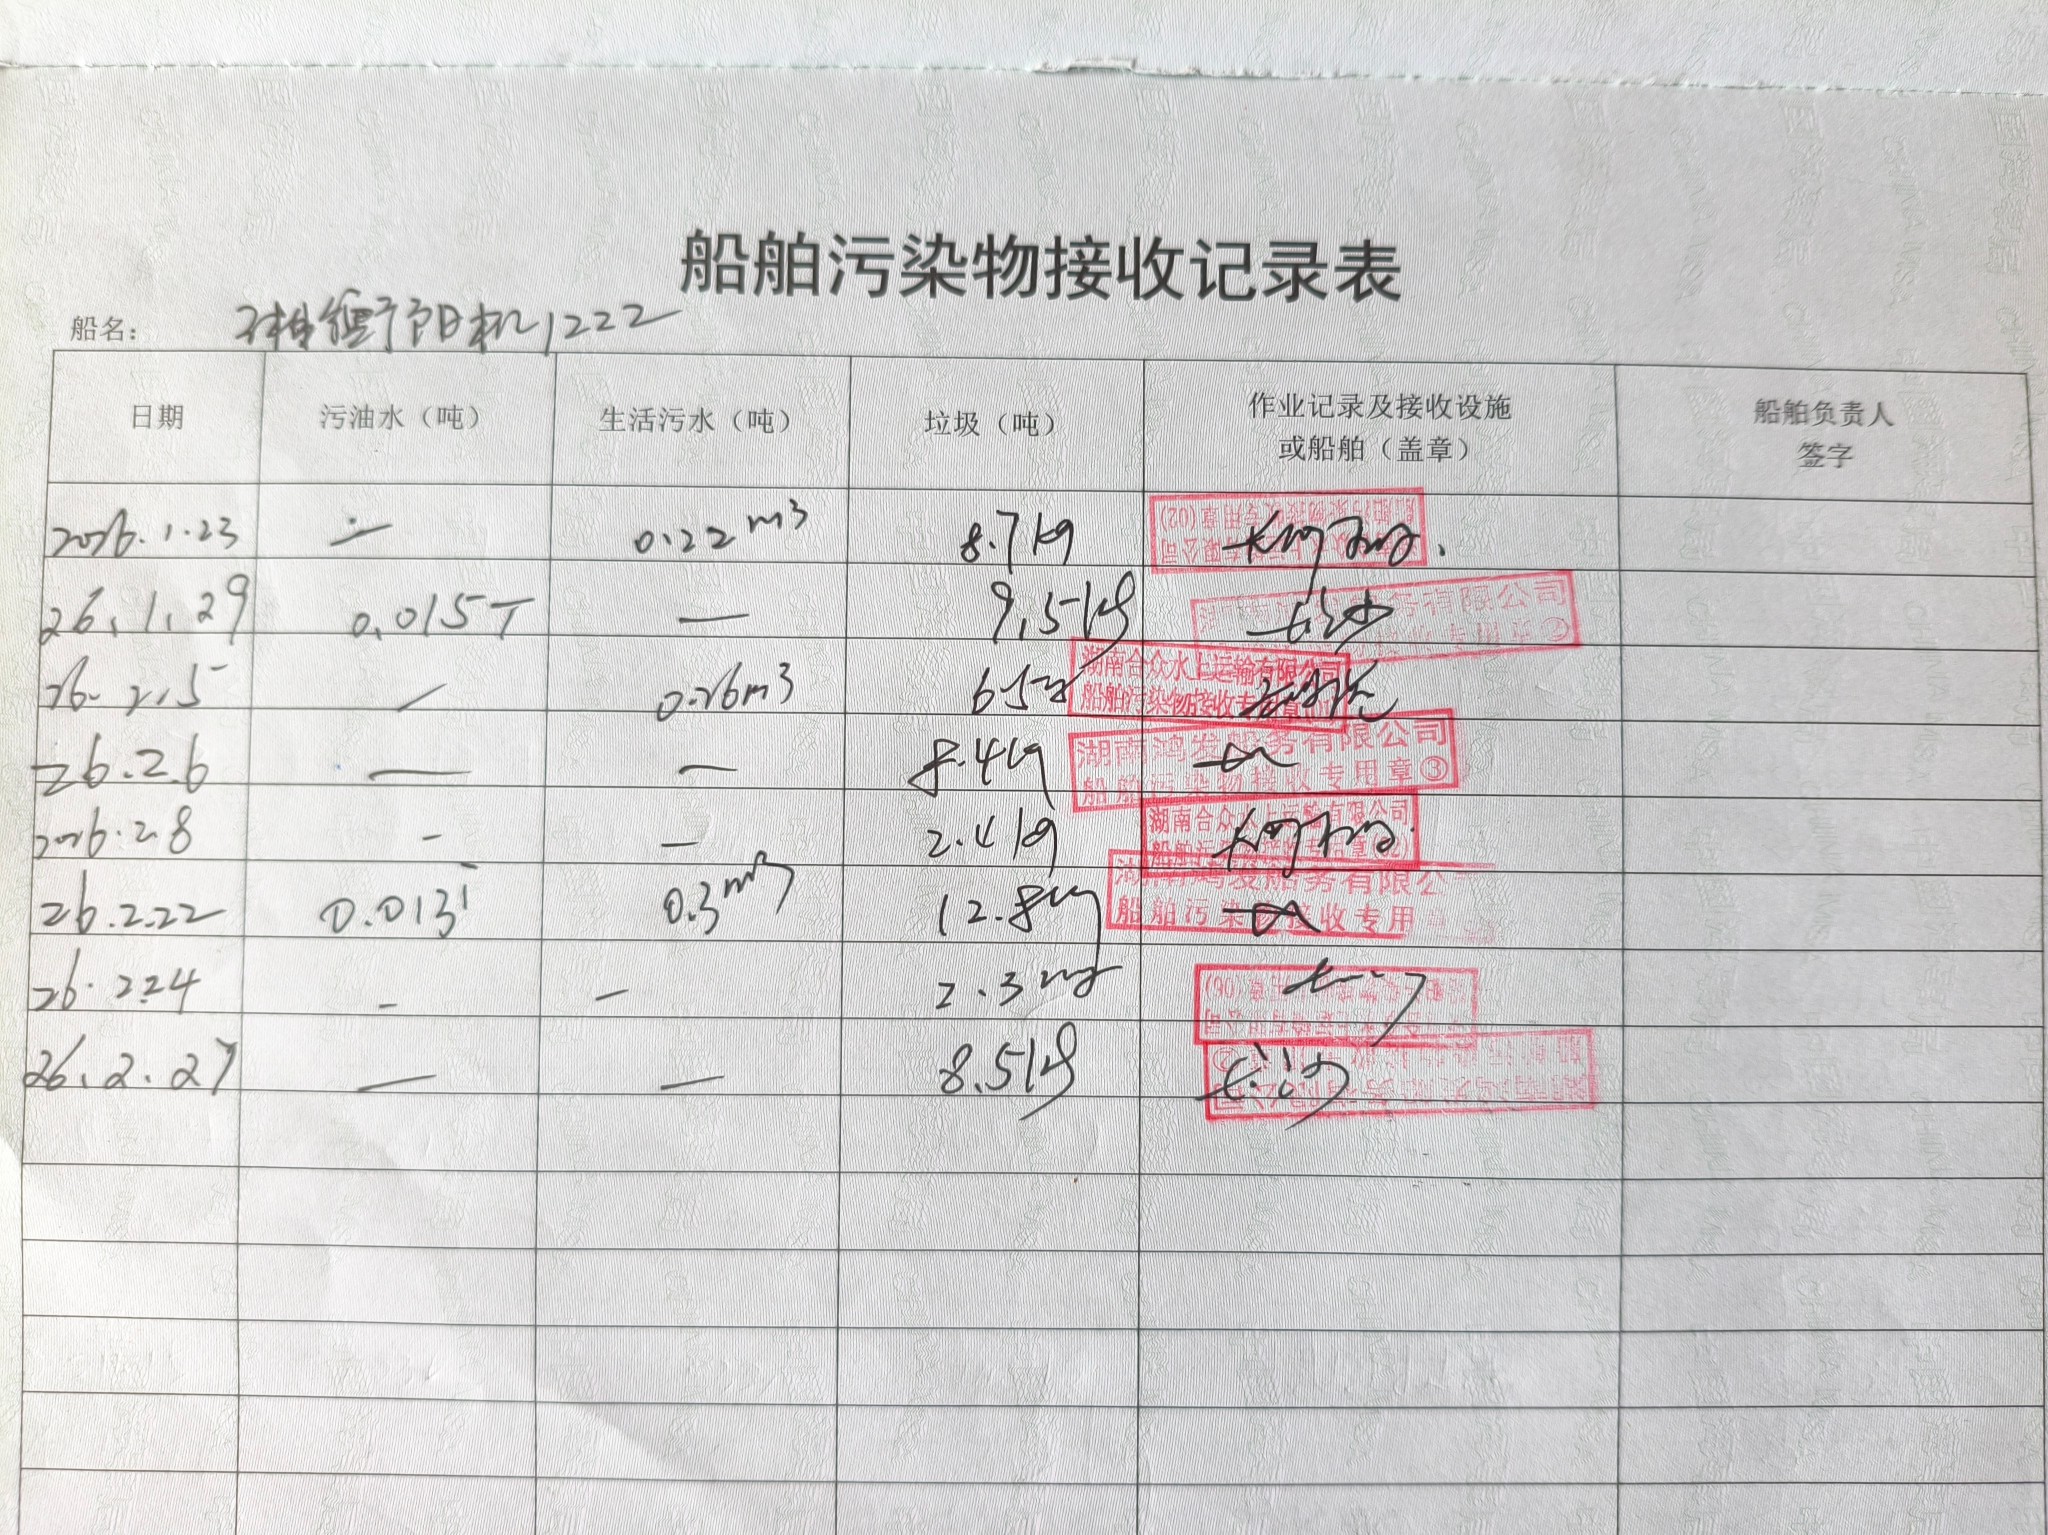 船舶污染物接收记录表
船名： 湘衡阳机1222
日期 污油水（吨） 生活污水（吨） 垃圾（吨） 作业记录及接收设施或船舶（盖章） 船舶负责人签字
2026.1.23 — 0.22m3 8.7kg
26.1.29 0.015T — 9.5kg
26.2.5 — 0.26m3
湖南合众水上运输有限公司
船舶污染物接收专用章
26.2.6 — — 8.4kg
湖南鸿发船务有限公司
船舶污染物接收专用章③
2026.2.8 - — 2.4kg
湖南合众水上运输有限公司
26.2.22 0.013T 0.3m3 12.8kg
湖南鸿发船务有限公
船舶污染物接收专用
26.2.24 - — 2.3kg
26.2.27 — — 8.5kg 长沙